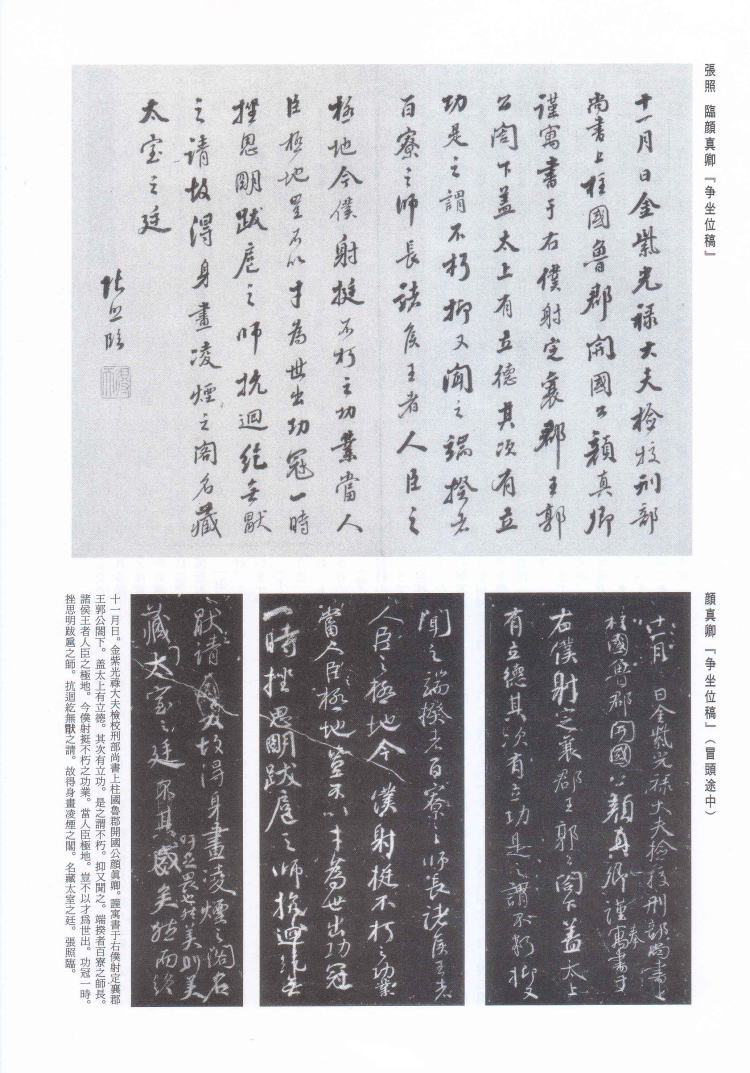 張照　臨顔真卿『争坐位稿』
十一月日金紫光祿大夫檢校刑部
尚書上柱國魯郡開國公顏真卿
謹寓書于右僕射定襄郡王郭
公閤下蓋太上有立德其次有立
功是之謂不朽抑又聞之端揆者
百寮之師長諸侯王者人臣之
極地今僕射挺不朽之功業當人
臣極地豈不以才為世出功冠一時
挫思明跋扈之師抗迴紇無猒
之請故得身畫凌煙之閣名藏
太室之廷
張照臨
顔真卿『争坐位稿』（冒頭途中）
十一月　日金紫光祿大夫檢校刑部尚書上
柱國魯郡開國公顏真卿謹奉寓書于
右僕射定襄郡王郭公閤下蓋太上
有立德其次有立功是之謂不朽抑又
聞之端揆者百寮之師長諸侯王者
人臣之極地今僕射挺不朽之功業
當人臣極地豈不以才為世出功冠
一時挫思明跋扈之師抗迴紇無
猒請故得身畫凌煙之閣名
吁足畏也然美則美
藏太室之廷其盛矣然而終
十一月日。金紫光祿大夫檢校刑部尚書上柱國魯郡開國公顔眞卿。謹寓書于右僕射定襄郡
王郭公閤下。盖太上有立德。其次有立功。是之謂不朽。抑又聞之。端揆者百寮之師長。
諸侯王者人臣之極地。今僕射挺不朽之功業。當人臣極地。豈不以才爲世出。功冠一時。
挫思明跋扈之師。抗迴紇無猒之請。故得身畫凌煙之閣。名藏太室之廷。張照臨。